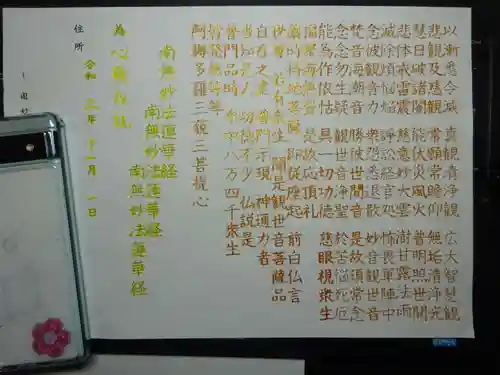 以漸悉令滅 真観清浄観 広大智慧観
悲観及慈観 常願常瞻仰 無垢清浄光
慧日破諸闇 能伏災風火 普明照世間
悲体戒雷震 慈意妙大雲 澍甘露法雨
滅除煩悩焔 諍訟経官処 怖畏軍陣中
念彼観音力 衆怨悉退散 妙音観世音
梵音海潮音 勝彼世間音 是故須常念
念念勿生疑 観世音浄聖 於苦悩死厄
能為作依怙 具一切功徳 慈眼視衆生
福聚海無量 是故応頂礼
爾時持地菩薩 即従座起 前白仏言
世尊 若有衆生 聞是観世音菩薩品
自在之業 普門示現 神通力者
当知是人 功徳不少 仏説是
普門品時 衆中八万四千衆生
皆発無等等
阿耨多羅三藐三菩提心
南無妙法蓮華経
南無妙法蓮華経
南無妙法蓮華経
為 心願成就
令和 年 十一月 一日
住所